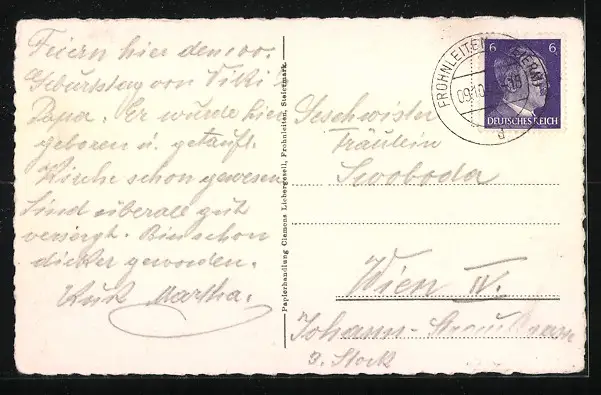 Feiern hier den 100.
Geburtstag von Viki's
Papa. Er wurde hier
geboren u. getauft.
Kirche schon gewesen
Sind überale gut
versorgt. Bin schon
dicker geworden.
Kuß Martha.
Papierhandlung Clemens Liebergesell, Frohnleiten, Steiermark.
FROHNLEITEN
6 6
DEUTSCHES REICH
d
Geschwister
Fräulein
Swoboda
Wien IV.
Johann-Strauß
3. Stock